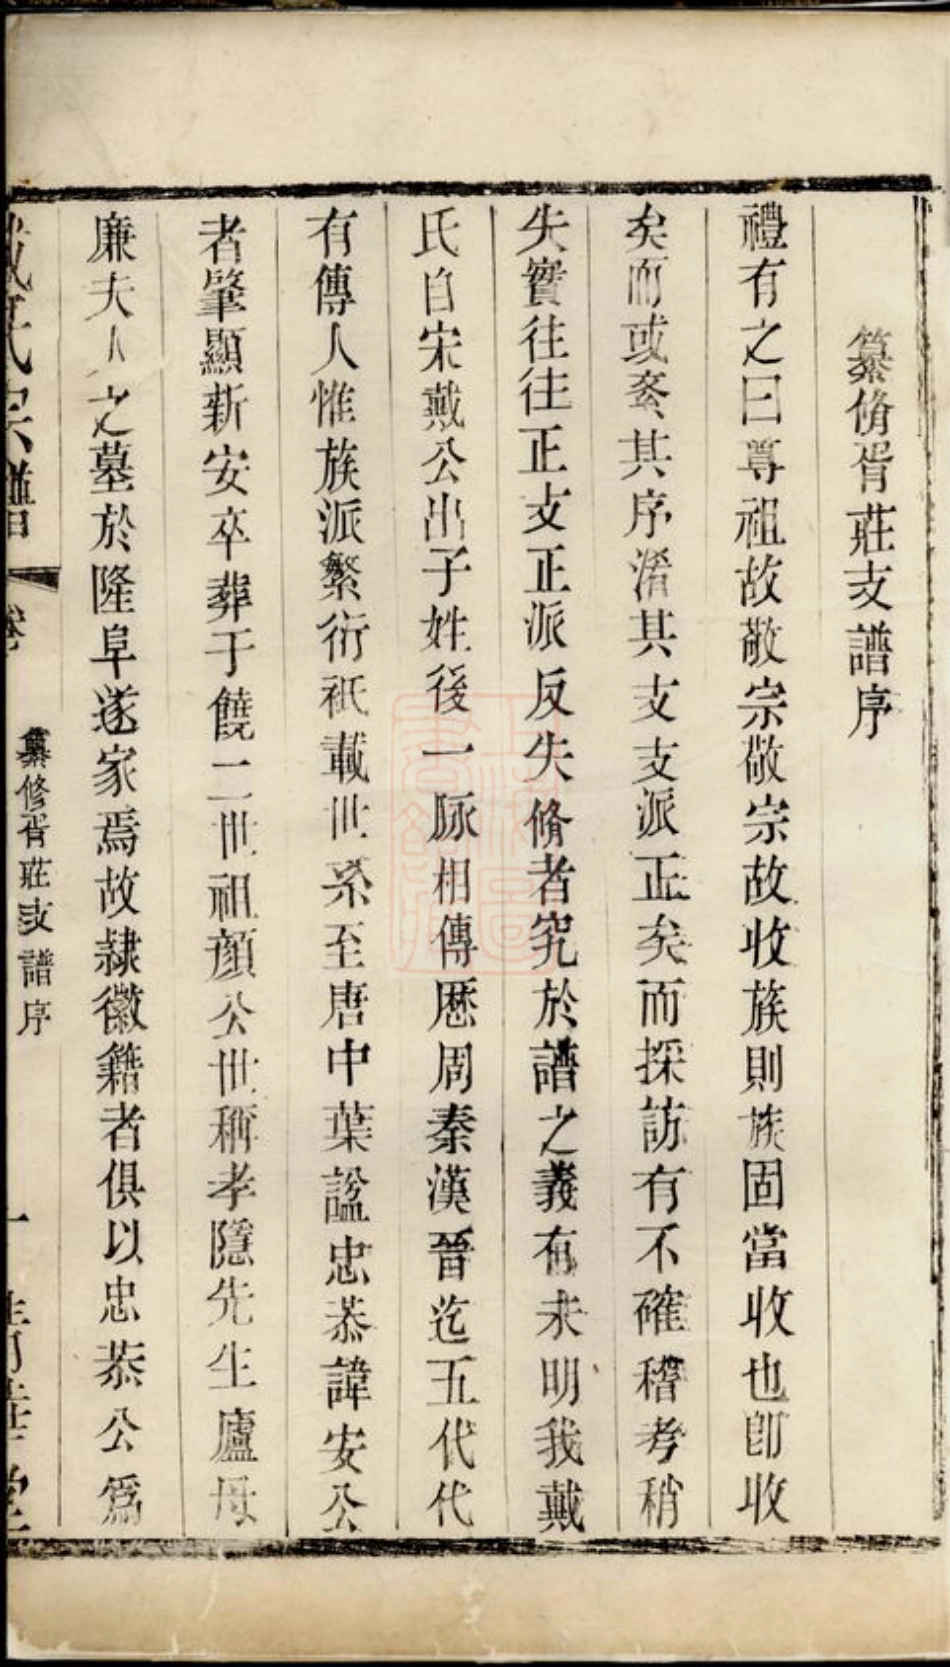 纂脩胥莊支譜序
禮有之曰尊祖故敬宗敬宗故收族則族固當收也卽收
矣而或紊其序淆其支支派正矣而採訪有不確稽考稍
失實往往正支正派反失脩者究於譜之義有未明我戴
氏自宋戴公出子姓後一脉相傳厯周秦漢晉迄五代代
有傳人惟族派繁衍祇載世系至唐中葉諡忠恭諱安公
者肇顯新安卒葬于饒二世祖顏公世稱孝隱先生廬母
廉夫人之墓於隆阜遂家焉故隷徽籍者俱以忠恭公爲
戴氏宗譜 卷 纂修胥莊支譜序 一